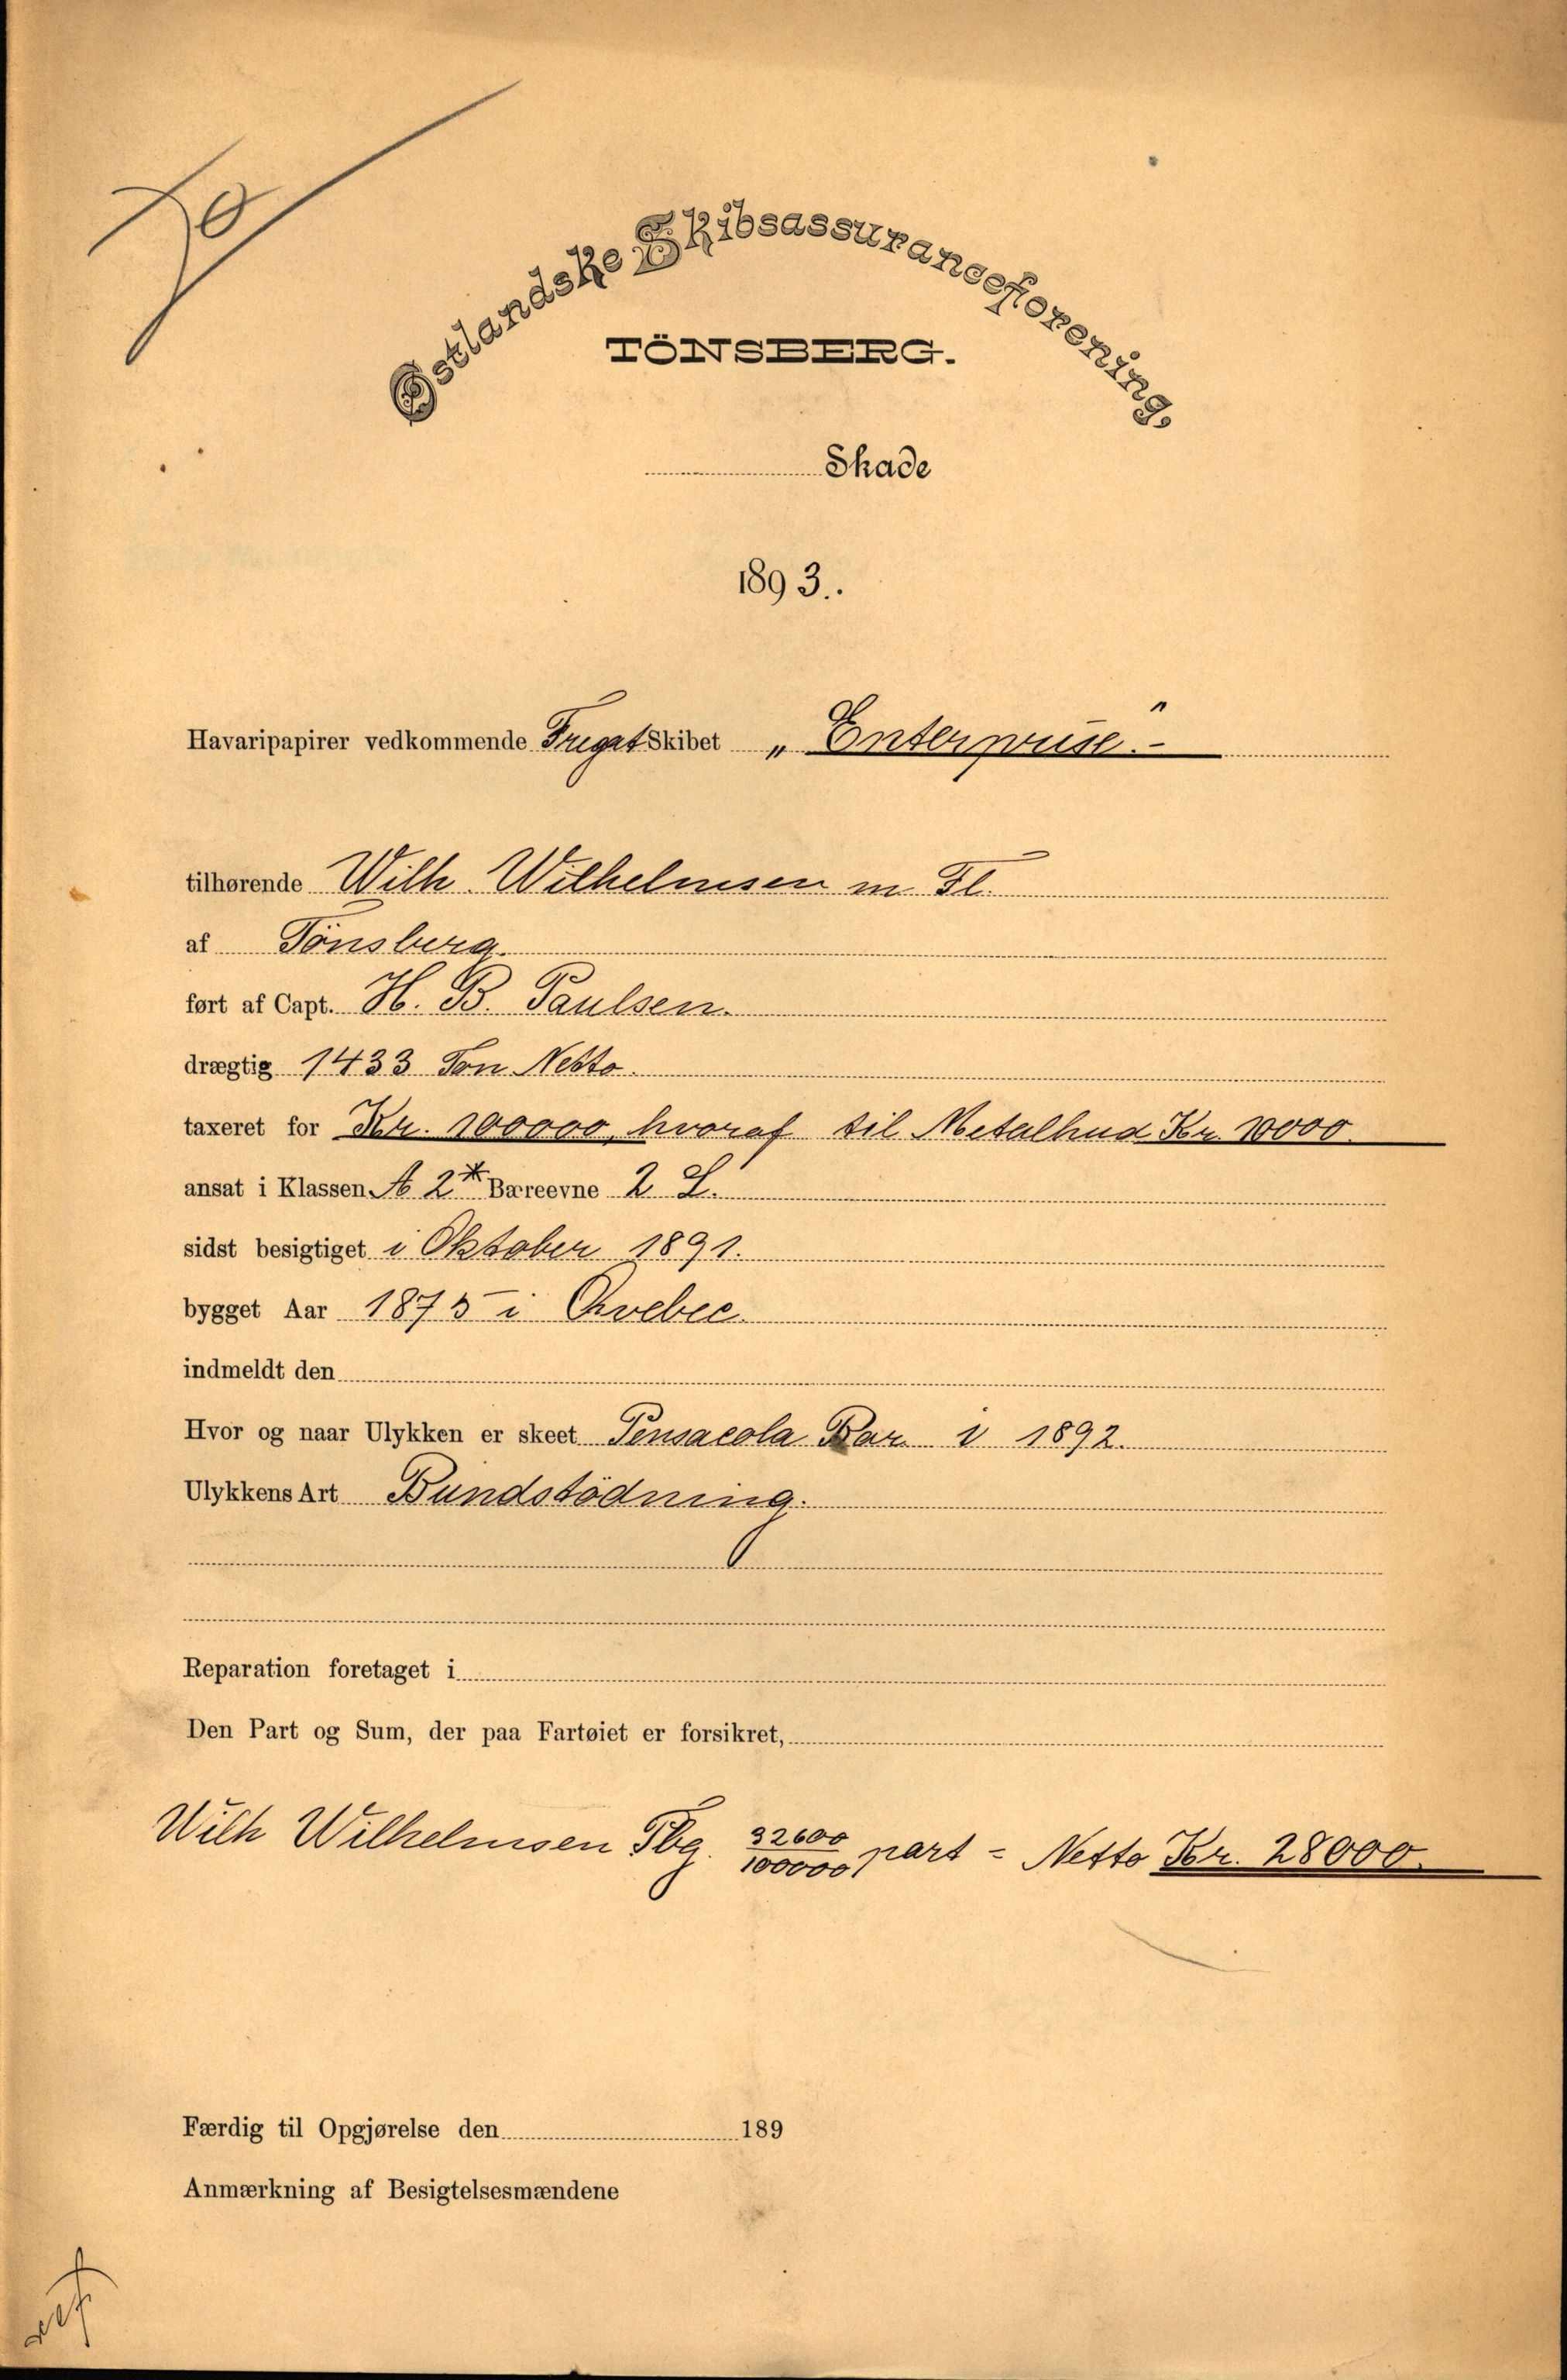 Østlandske Skibsassuranceforening.
TÖNSBERG.
Skade
1893.
Havaripapirer vedkommende Fregat Skibet „Enterprise."
tilhørende Wilh. Wilhelmsen m. Fl.
af Tönsberg.
ført af Capt. H. B. Paulsen.
drægtig 1433 Ton Netto.
taxeret for Kr. 100000, hvoraf til Metalhud Kr. 10000
ansat i Klassen A 2 * Bæreevne 2 L.
sidst besigtiget i Oktober 1891.
bygget Aar 1875 i Qvebec.
indmeldt den
Hvor og naar Ulykken er skeet Pensacola Bar i 1892.
Ulykkens Art Bundstödning.
Reparation foretaget i
Den Part og Sum, der paa Fartøiet er forsikret,
Wilh Wilhelmsen Tbg. 32600/100000 part = Netto Kr. 28000.
Færdig til Opgjørelse den 189
Anmærkning af Besigtelsesmændene